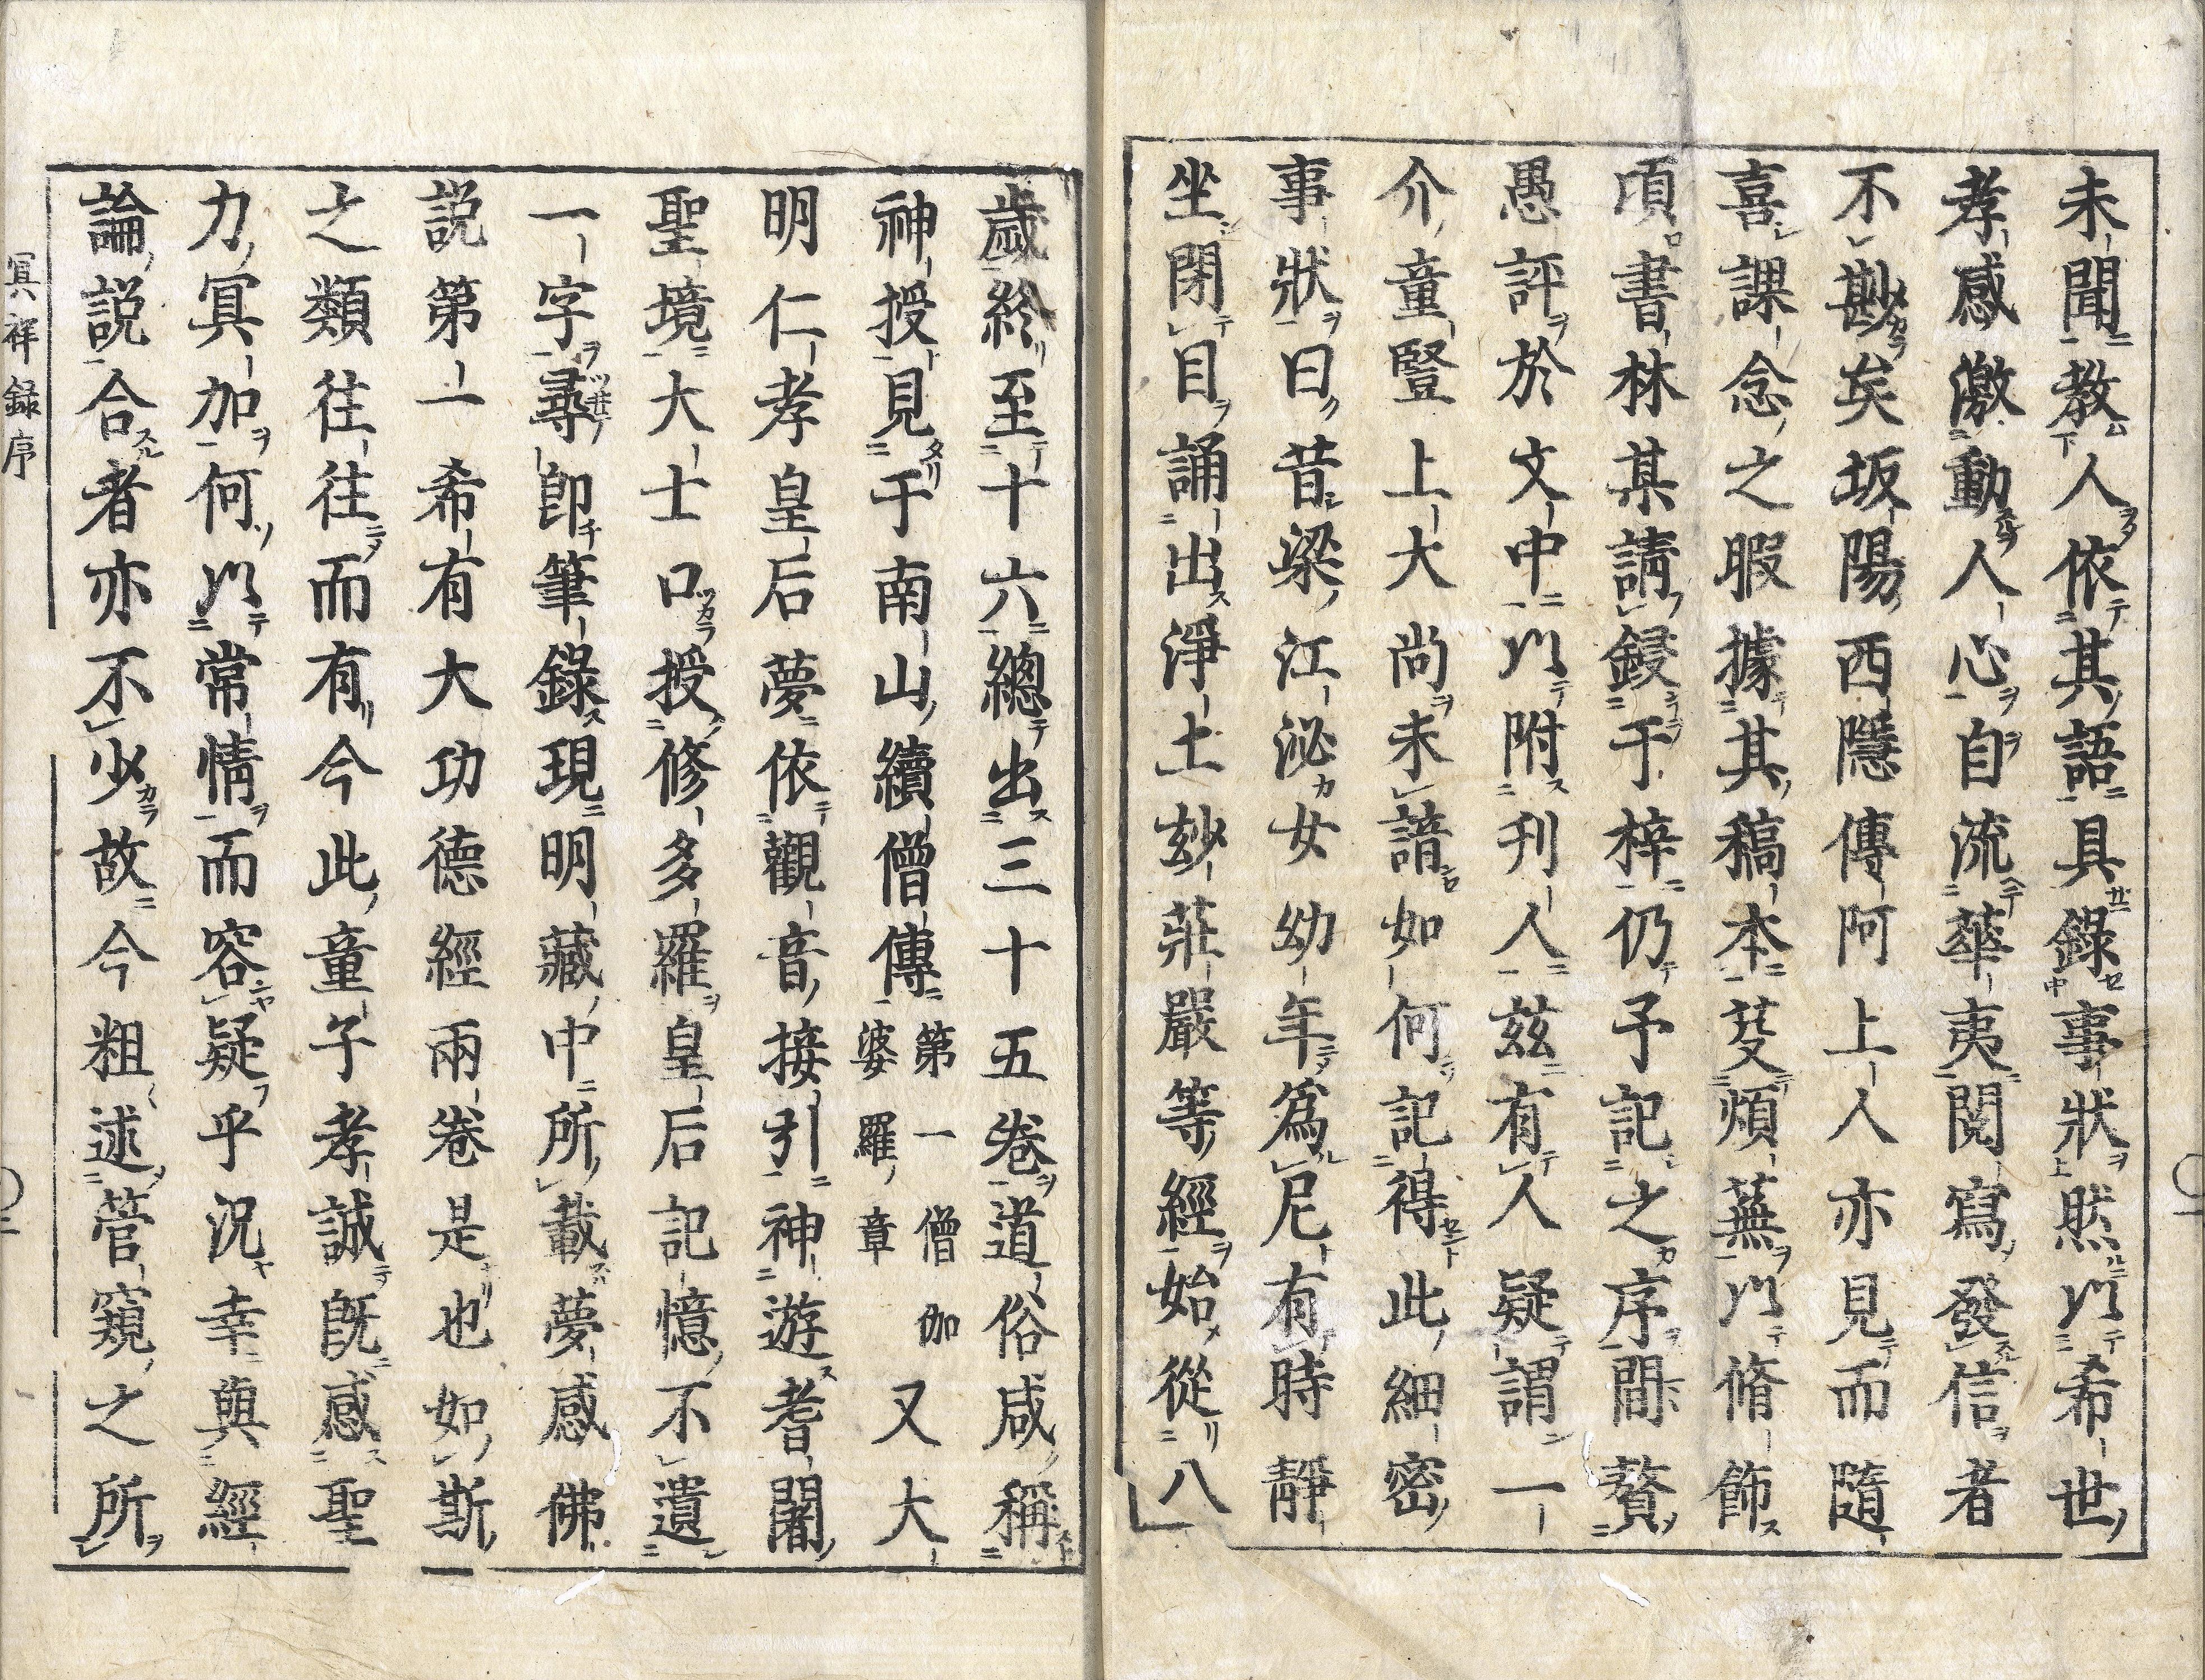 未聞教人依其語具錄事狀然以希世
孝感激動人心自流華夷閱寫發信者
不尠矣坂陽西隱傳阿上人亦見而隨
喜課念之暇據其稿本芟煩蕪以脩飾
頃書林某請鋟于梓仍予記之序間贅
愚評於文中以附刊人茲有人疑謂一
介童豎上大尚未諳如何記得此細密
事狀曰昔梁江泌女幼年爲尼有時靜
坐閉目誦出淨土玅莊嚴等經始從八
歲終至十六總出三十五卷道俗咸稱
神授見于南山續僧傳第一僧伽婆羅章又大
明仁孝皇后夢依觀音接引神遊耆闍
聖境大士口授修多羅皇后記憶不遺
一字尋即筆錄現明藏中所載夢感佛
說第一希有大功德經兩卷是也如斯
之類往往而有今此童子孝誠既感聖
力冥加何以常情而容疑乎況幸與經
論說合者亦不少故今粗述菅窺之所
冥祥録序
二